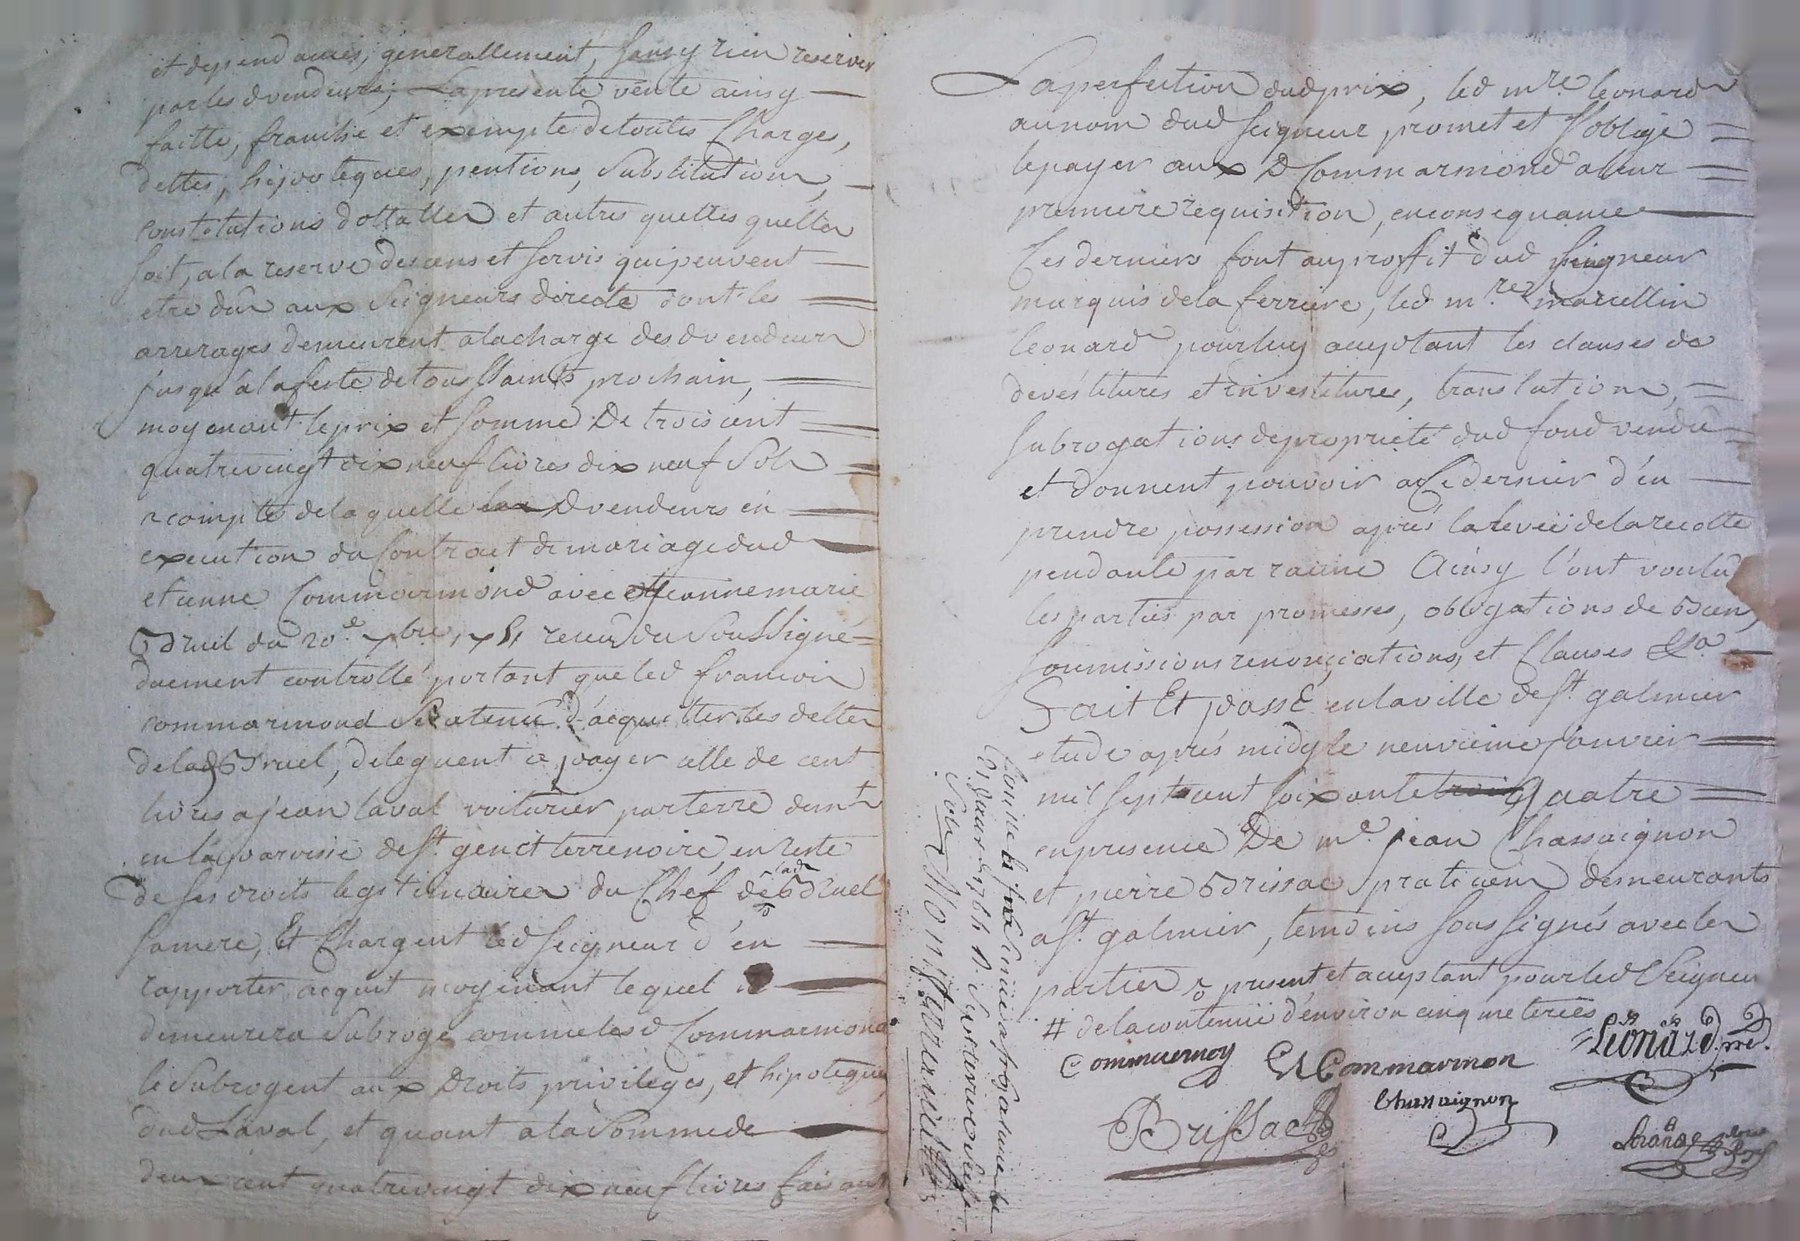 et dependances, generallement, sans y rien reserver
par les d vendeurs; La presente vente ainsy
faitte, franche et exempte de toutes Charges,
dettes, hipoteques, pentions, substitutions,
constitutions dottalles et autres quelles quelles
soit, a la reserve des cens et servis qui peuvent
etre dûs aux Seigneurs directe dont les
arrerages demeurent a la charge des d vendeurs
jusqu'à la feste de tous Saints prochain,
moyenant le prix et somme De trois cent
quatrevingt dix neuf livres dix neuf sols
a compte de laquelle les d vendeurs en
execution du Contract de mariage dud
etienne Commarmond avec Jeanne marie
Bruel du 20e xbre, receu du soussigné
duement controllé portant que led francois
commarmond se atenu d'acquitter les dettes
de lad Bruel, deleguent a payer celle de cent
livres a jean laval voiturier par terre demt
en la parroisse de st. genest terrenoire, en reste
de ses droits legitimaires du Chef de lad Bruel
sa mere, Et Chargent led seigneur d'en
rapporter acquit moyenant lequel il
demeurera subrogé comme les d Commarmond
le subrogent aux Droits privileges, et hipoteques
dud Laval, et quant a la somme de
deux cent quatrevingt dix neuf livres faisant
La perfection dud prix, led mre. leonard
au nom dud seigneur promet et s'oblige
le payer aux d Commarmond a leur
premiere requisition, en consequance
Ces derniers font au proffit dud seigneur
marquis de la ferriere, led mre marcellin
leonard pour luy acceptant les clauses de
devestitures et investitures, translation,
subrogations de propriete dud fond vendu
et donnent pouvoir a Ce dernier d'en
prendre possession après la levée de la recolte
pendante par racine Ainsy l'ont voulu
les parties par promesses, obligations de biens,
soumissions renonciations, et Clauses &a.
Fait Et passé en la ville de st. galmier
etude après midy le neuvieme janvier
mil sept cent soixante trois quatre
en presence De me. jean Chassaignon
et pierre Brissac praticiens demeurants
a st. galmier, temoins soussignés avec les
parties present et acceptant pour led Seigneur
# de la contenue d'environ cinq meterées
Commarmon
E Commarmon
Léonard
Brissac
Chassaignon